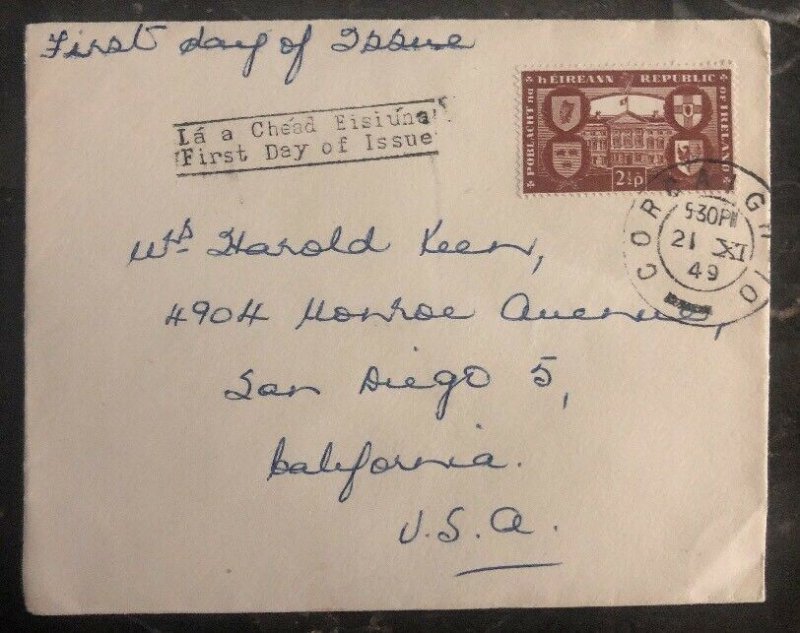 First day of Issue
Lá a Chéad Eisiúna
First Day of Issue
POBLACHT NA hÉIREANN REPUBLIC OF IRELAND
2½p
CORCAIGH
5 30PM
21 XI
49
Harold Keen,
4904 Monroe Avenue,
San Diego 5,
California.
U.S.A.